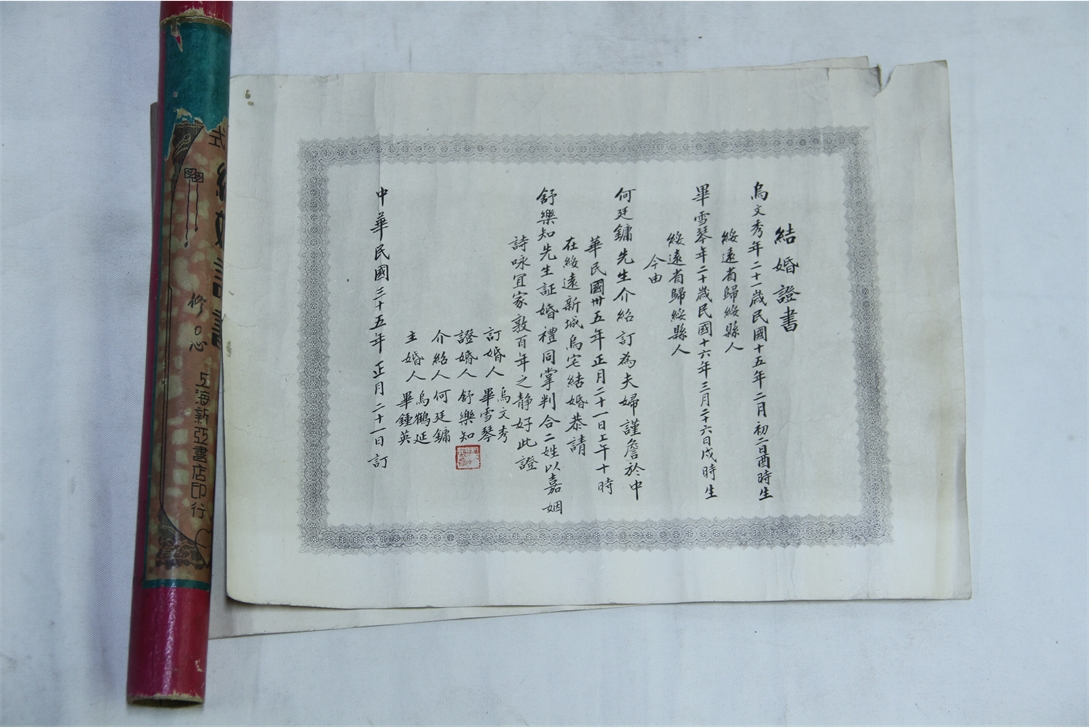 結婚證書
烏文秀年二十一歲民國十五年二月初二日酉時生
綏遠省歸綏縣人
畢雪琴年二十歲民國十六年三月二十六日戌時生
綏遠省歸綏縣人
今由
何廷鏞先生介紹訂為夫婦謹詹於中
華民國卅五年正月二十一日上午十時
在綏遠新城烏宅結婚恭請
舒樂知先生証婚禮同掌判合二姓以嘉姻
詩咏宜家敦百年之靜好此證
訂婚人 烏文秀 畢雪琴
證婚人 舒樂知
介紹人 何廷鏞
主婚人 烏鶴延 畢鍾英
中華民國三十五年正月二十一日訂
式結婚證書
上海新亞書店印行